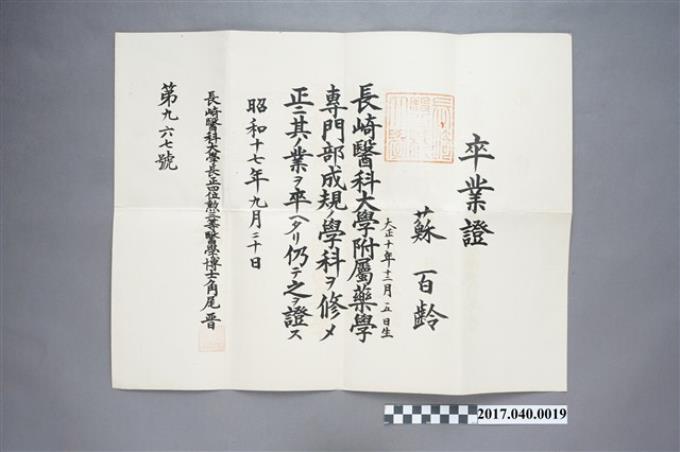 卒業證
蘇百齡
大正十年十二月五日生
長崎醫科大學附屬藥學
專門部成規ノ學科ヲ修メ
正ニ其ノ業ヲ卒ヘタリ仍テ之ヲ證ス
昭和十七年九月二十日
長崎醫科大學長正四位勲三等醫學博士角尾晋
第九六七號
2017.040.0019